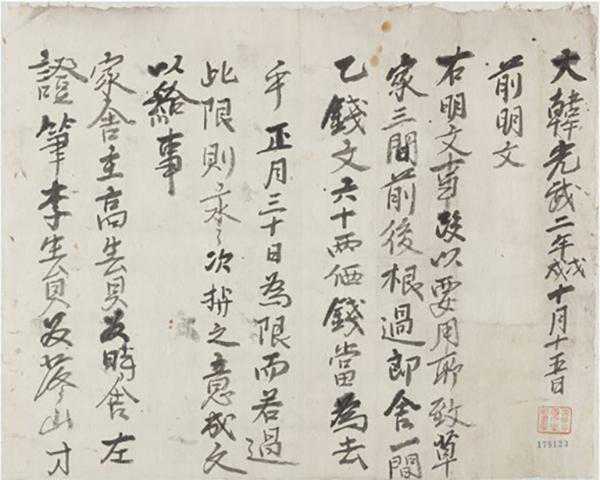 大韓光武二年戊戌十月十五日
前明文
右明文事段以要用所致草
家三間前後根過郎舍一間
乙錢文六十兩価錢當為去
乎正月三十日為限而若過
此限則永〻次持之意成文
以給事
家舍主高生員 時舍左
證筆李生員 山寸
175123